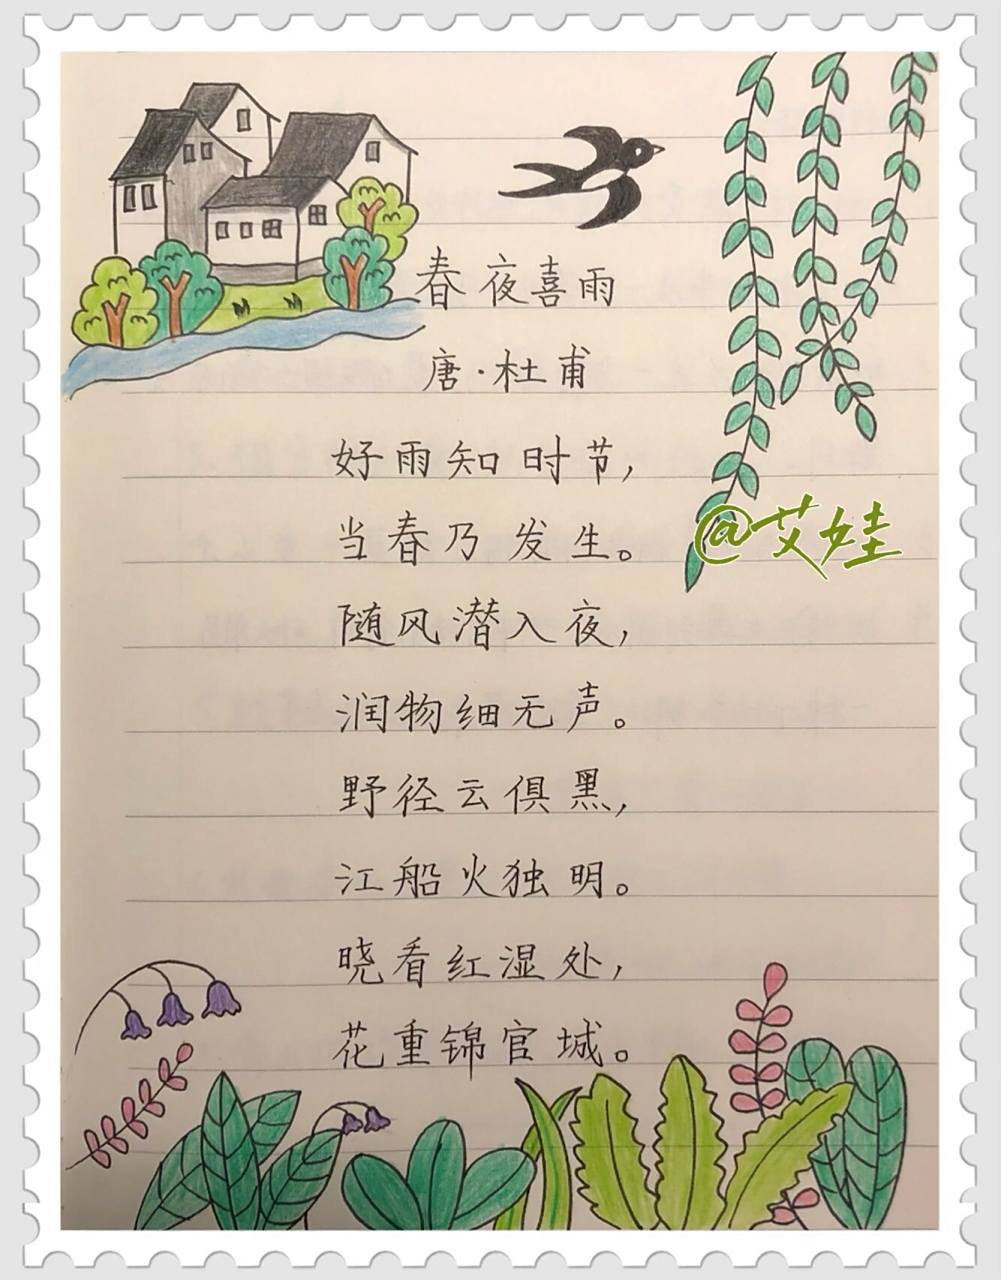 春夜喜雨
唐·杜甫
好雨知时节,
当春乃发生。
@艾娃
随风潜入夜,
润物细无声。
野径云俱黑,
江船火独明。
晓看红湿处,
花重锦官城。